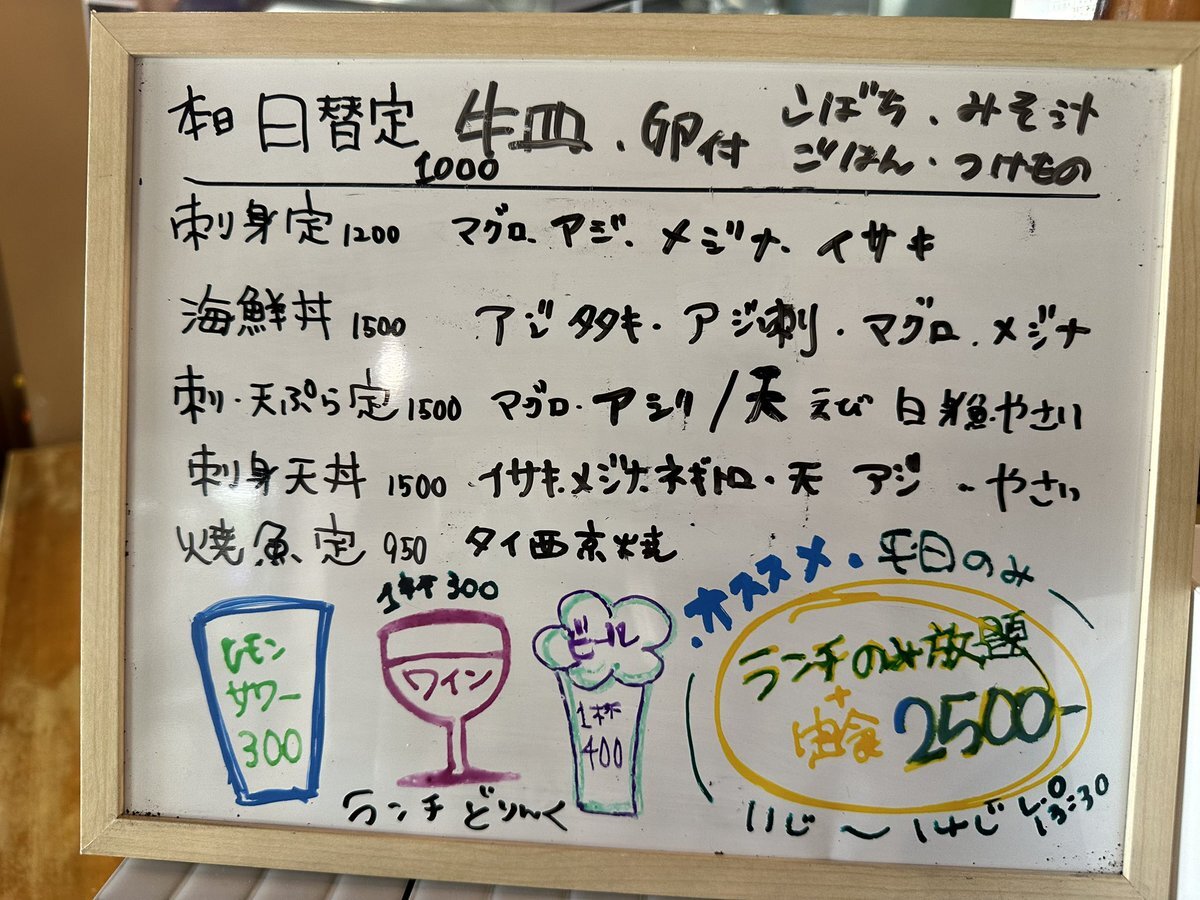 本日 日替定 牛皿、卵付 こばち、みそ汁
1000 ごはん・つけもの
刺身定 1200 マグロ、アジ、メジナ、イサキ
海鮮丼 1500 アジタタキ・アジ刺・マグロ、メジナ
刺・天ぷら定 1500 マグロ・アジ/天 えび 白身魚、やさい
刺身天丼 1500 イサキ、メジナ、ネギトロ・天 アジ 、やさい
焼魚定 950 タイ西京焼
レモン
サワー
300
1杯300
ワイン
ビール
1杯
400
ランチどりんく
・オススメ・平日のみ
ランチのみ放題
+
2500-
11じ〜14じ L.O
13:30